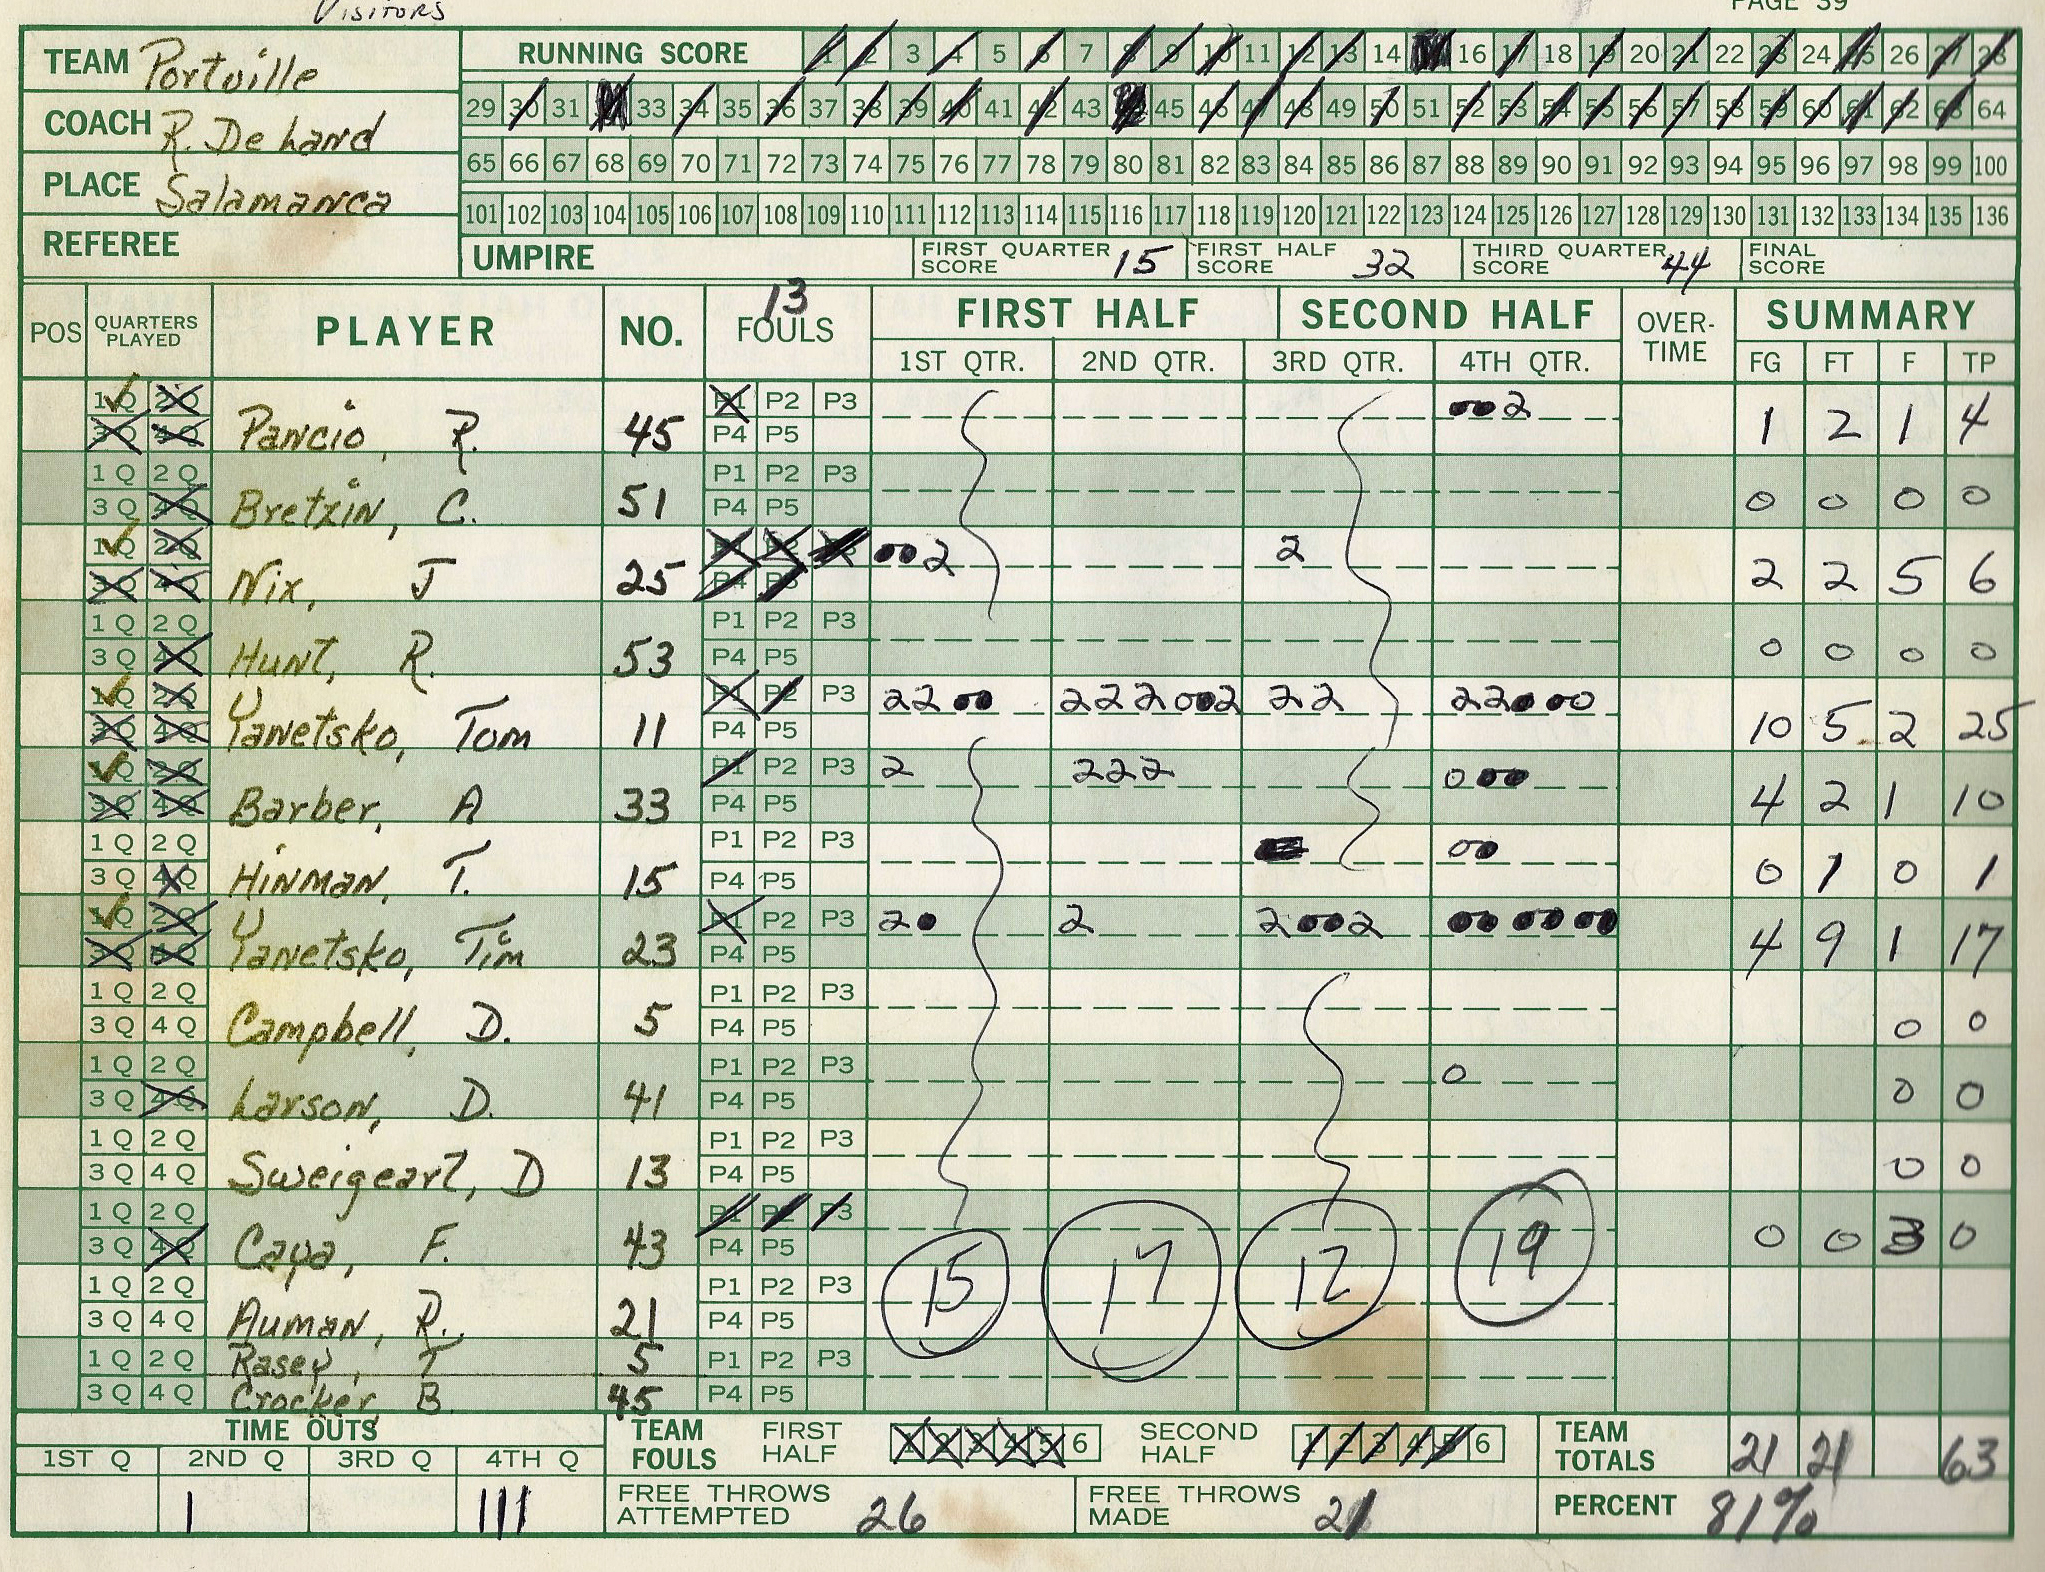 VISITORS
PAGE 39
TEAM Portville
COACH R. DeLand
PLACE Salamanca
REFEREE
RUNNING SCORE 1 2 3 4 5 6 7 8 9 10 11 12 13 14 16 17 18 19 20 21 22 23 24 25 26 27 28
29 30 31 33 34 35 36 37 38 39 40 41 42 43 44 45 46 47 48 49 50 51 52 53 54 55 56 57 58 59 60 61 62 63 64
65 66 67 68 69 70 71 72 73 74 75 76 77 78 79 80 81 82 83 84 85 86 87 88 89 90 91 92 93 94 95 96 97 98 99 100
101 102 103 104 105 106 107 108 109 110 111 112 113 114 115 116 117 118 119 120 121 122 123 124 125 126 127 128 129 130 131 132 133 134 135 136
UMPIRE FIRST QUARTER SCORE 15 FIRST HALF SCORE 32 THIRD QUARTER SCORE 44 FINAL SCORE
13
POS QUARTERS PLAYED PLAYER NO. FOULS FIRST HALF SECOND HALF OVER-TIME SUMMARY
1ST QTR. 2ND QTR. 3RD QTR. 4TH QTR. FG FT F TP
1Q 2Q P1 P2 P3 2
3Q 4Q Pancio, R. 45 P4 P5 1 2 1 4
1Q 2Q P1 P2 P3
3Q 4Q Bretzin, C. 51 P4 P5 0 0 0 0
1Q 2Q P1 P2 P3 002 2
3Q 4Q Nix, J 25 P4 P5 2 2 5 6
1Q 2Q P1 P2 P3
3Q 4Q Hunt, R. 53 P4 P5 0 0 0 0
1Q 2Q P1 P2 P3 2200 222002 22 22000
3Q 4Q Yanetsko, Tom 11 P4 P5 10 5 2 25
1Q 2Q P1 P2 P3 2 222 000
3Q 4Q Barber, A 33 P4 P5 4 2 1 10
1Q 2Q P1 P2 P3 00
3Q 4Q Hinman, T. 15 P4 P5 0 1 0 1
1Q 2Q P1 P2 P3 20 2 2002 000000
3Q 4Q Yanetsko, Tim 23 P4 P5 4 9 1 17
1Q 2Q P1 P2 P3
3Q 4Q Campbell, D. 5 P4 P5 0 0
1Q 2Q P1 P2 P3 0
3Q 4Q Larson, D. 41 P4 P5 0 0
1Q 2Q P1 P2 P3
3Q 4Q Sweigeart, D 13 P4 P5 0 0
1Q 2Q P1 P2 P3
3Q 4Q Capa, F. 43 P4 P5 0 0 3 0
1Q 2Q P1 P2 P3 15 17 12 19
3Q 4Q Auman, R. 21 P4 P5
1Q 2Q Rasey, T 5 P1 P2 P3
3Q 4Q Crocker, B. 45 P4 P5
TIME OUTS
1ST Q 2ND Q 3RD Q 4TH Q
1 111
TEAM FOULS FIRST HALF 1 2 3 4 5 6 SECOND HALF 1 2 3 4 5 6
FREE THROWS ATTEMPTED 26 FREE THROWS MADE 21
TEAM TOTALS 21 21 63
PERCENT 81%